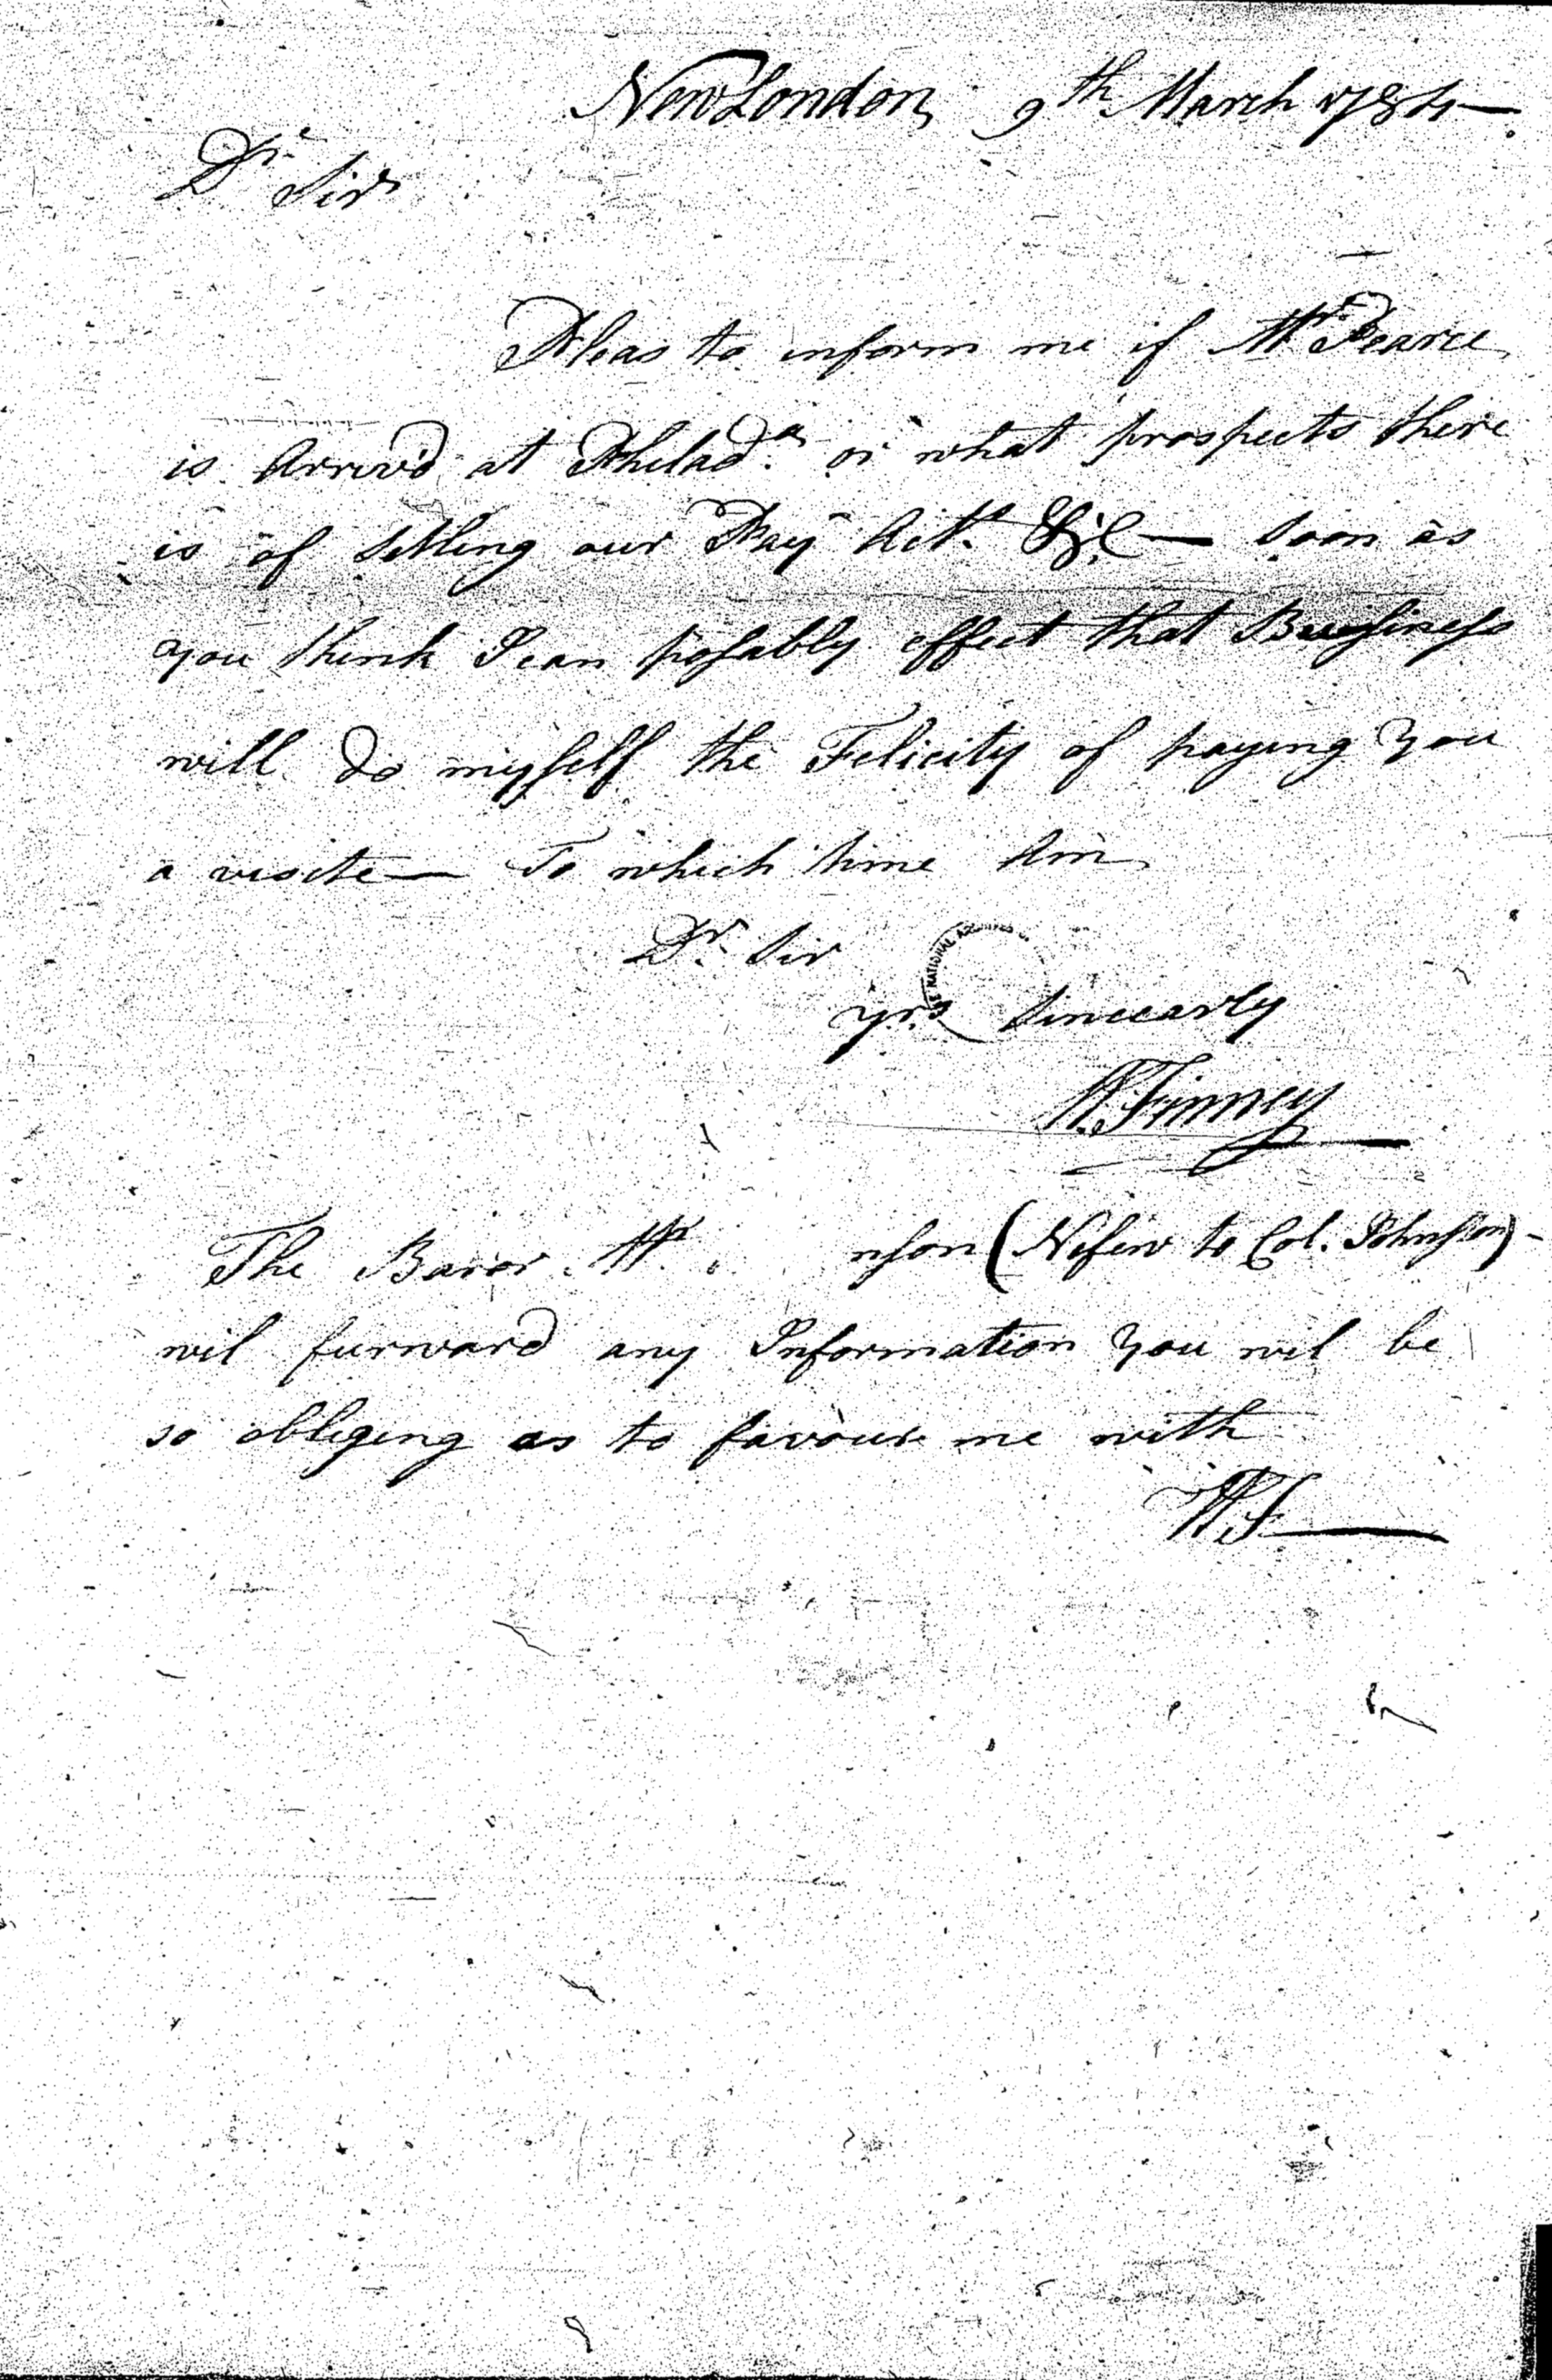 New London, 9th March 1784
Dr Sir
Pleas to inform me if Mr Pearce
is Arriv'd at Philada. or what prospects there
is of Setling our Pay Act. &c — Soon as
you think I can posably effect that Bussiness
will do myself the Felicity of paying you
a visite — To which time Am
Dr. Sir
yrs Sincearly
W. Finney
The Baror. Mr. nson (Nefew to Col. Johnson) -
wil furward any Information you wil be
so obligeng as to favour me with
W.F
THE NATIONAL ARCHIVES